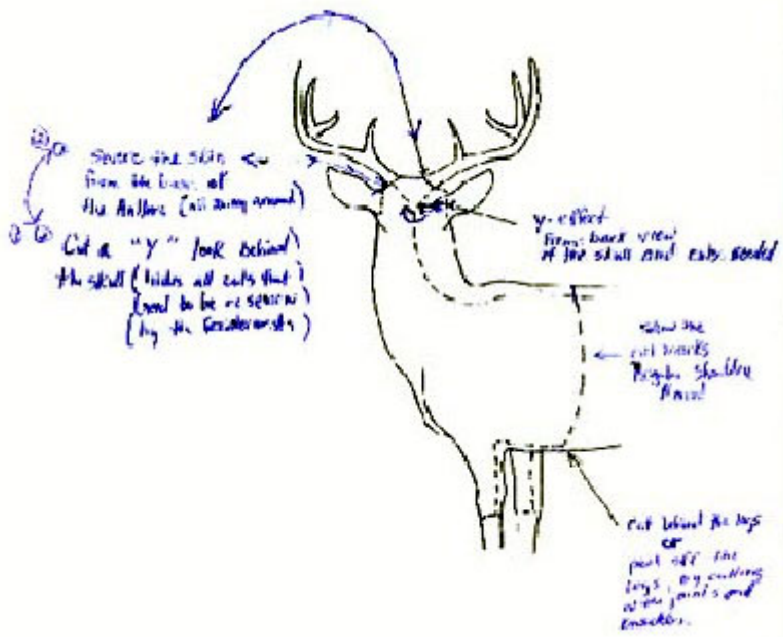 Sever the skin
from the base of
the Antlers (all the way around)
Cut a "Y" look behind
the skull (hides all cuts that)
(need to be re sewn)
(by the taxidermists)
Y-effect
from back view
of the skull and cuts needed
the
cut marks
Regular Shoulder
Mount
cut behind the legs
or
peel off the
legs, by cutting
joints and